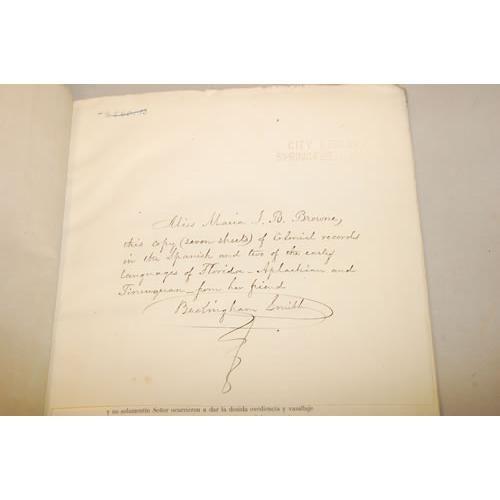 CITY LIBRARY
SPRINGFIELD
Miss Maria J. B. Browne,
this copy (seven sheets) of Colonial records
in the Spanish and two of the early
languages of Florida - Aplachian and
Timuquan - from her friend
Buckingham Smith
y no solamentin Señor ocurrieron a dar la desida ovediencia y vasallaje